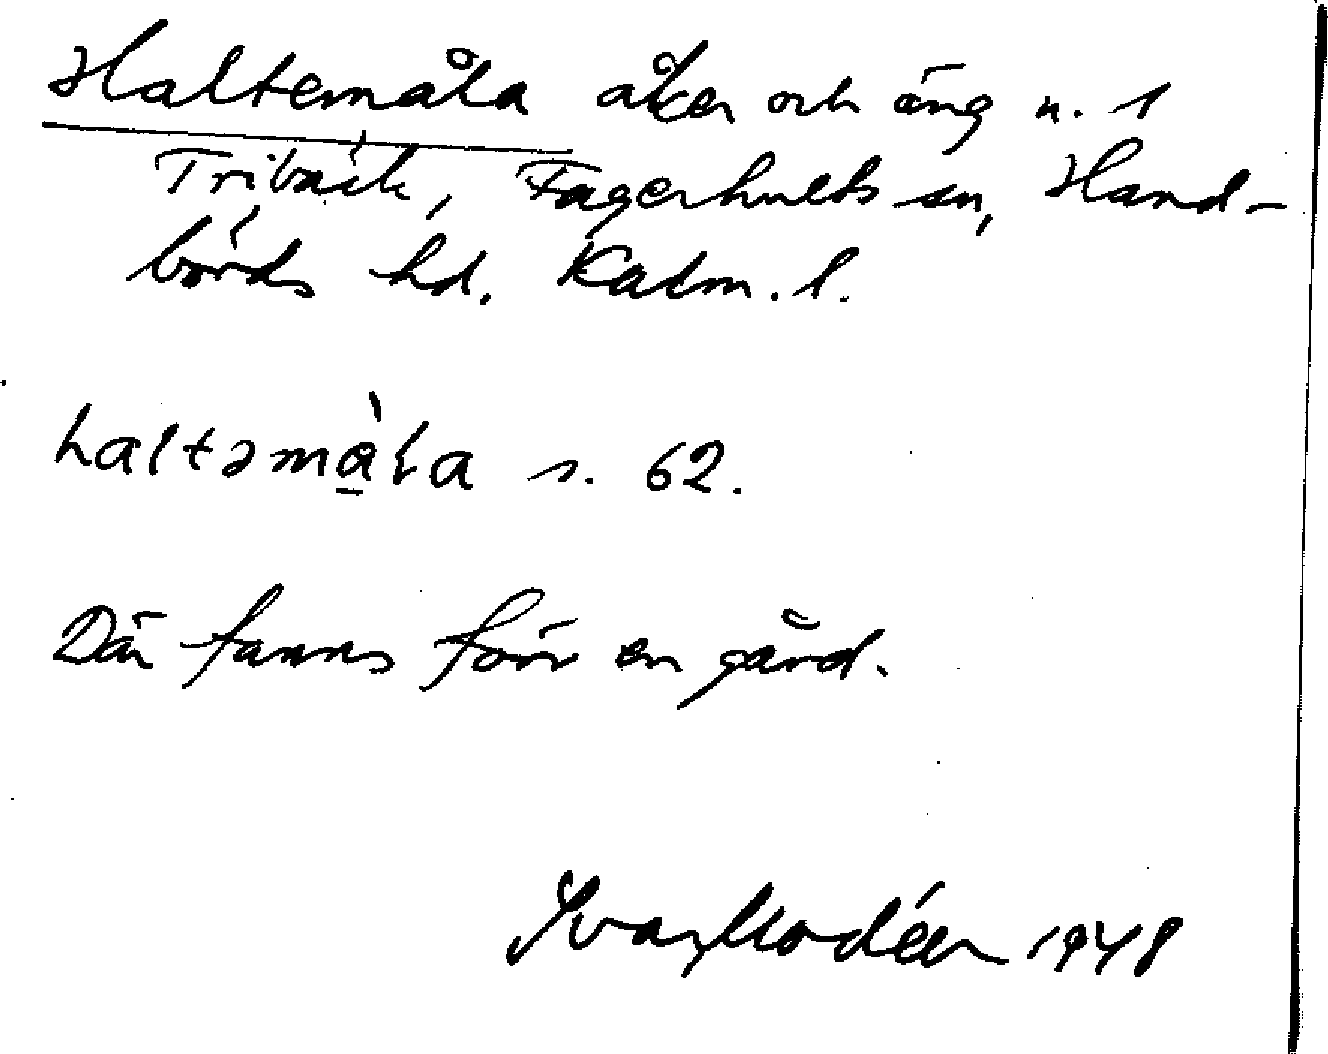 Haltemåla åker och äng n. 1
Tribäck, Fagerhults sn, Hand-
börds hd. Kalm. l.
haltəmà̠la s. 62.
Där fanns förr en gård.
Ivar Modéer 1948